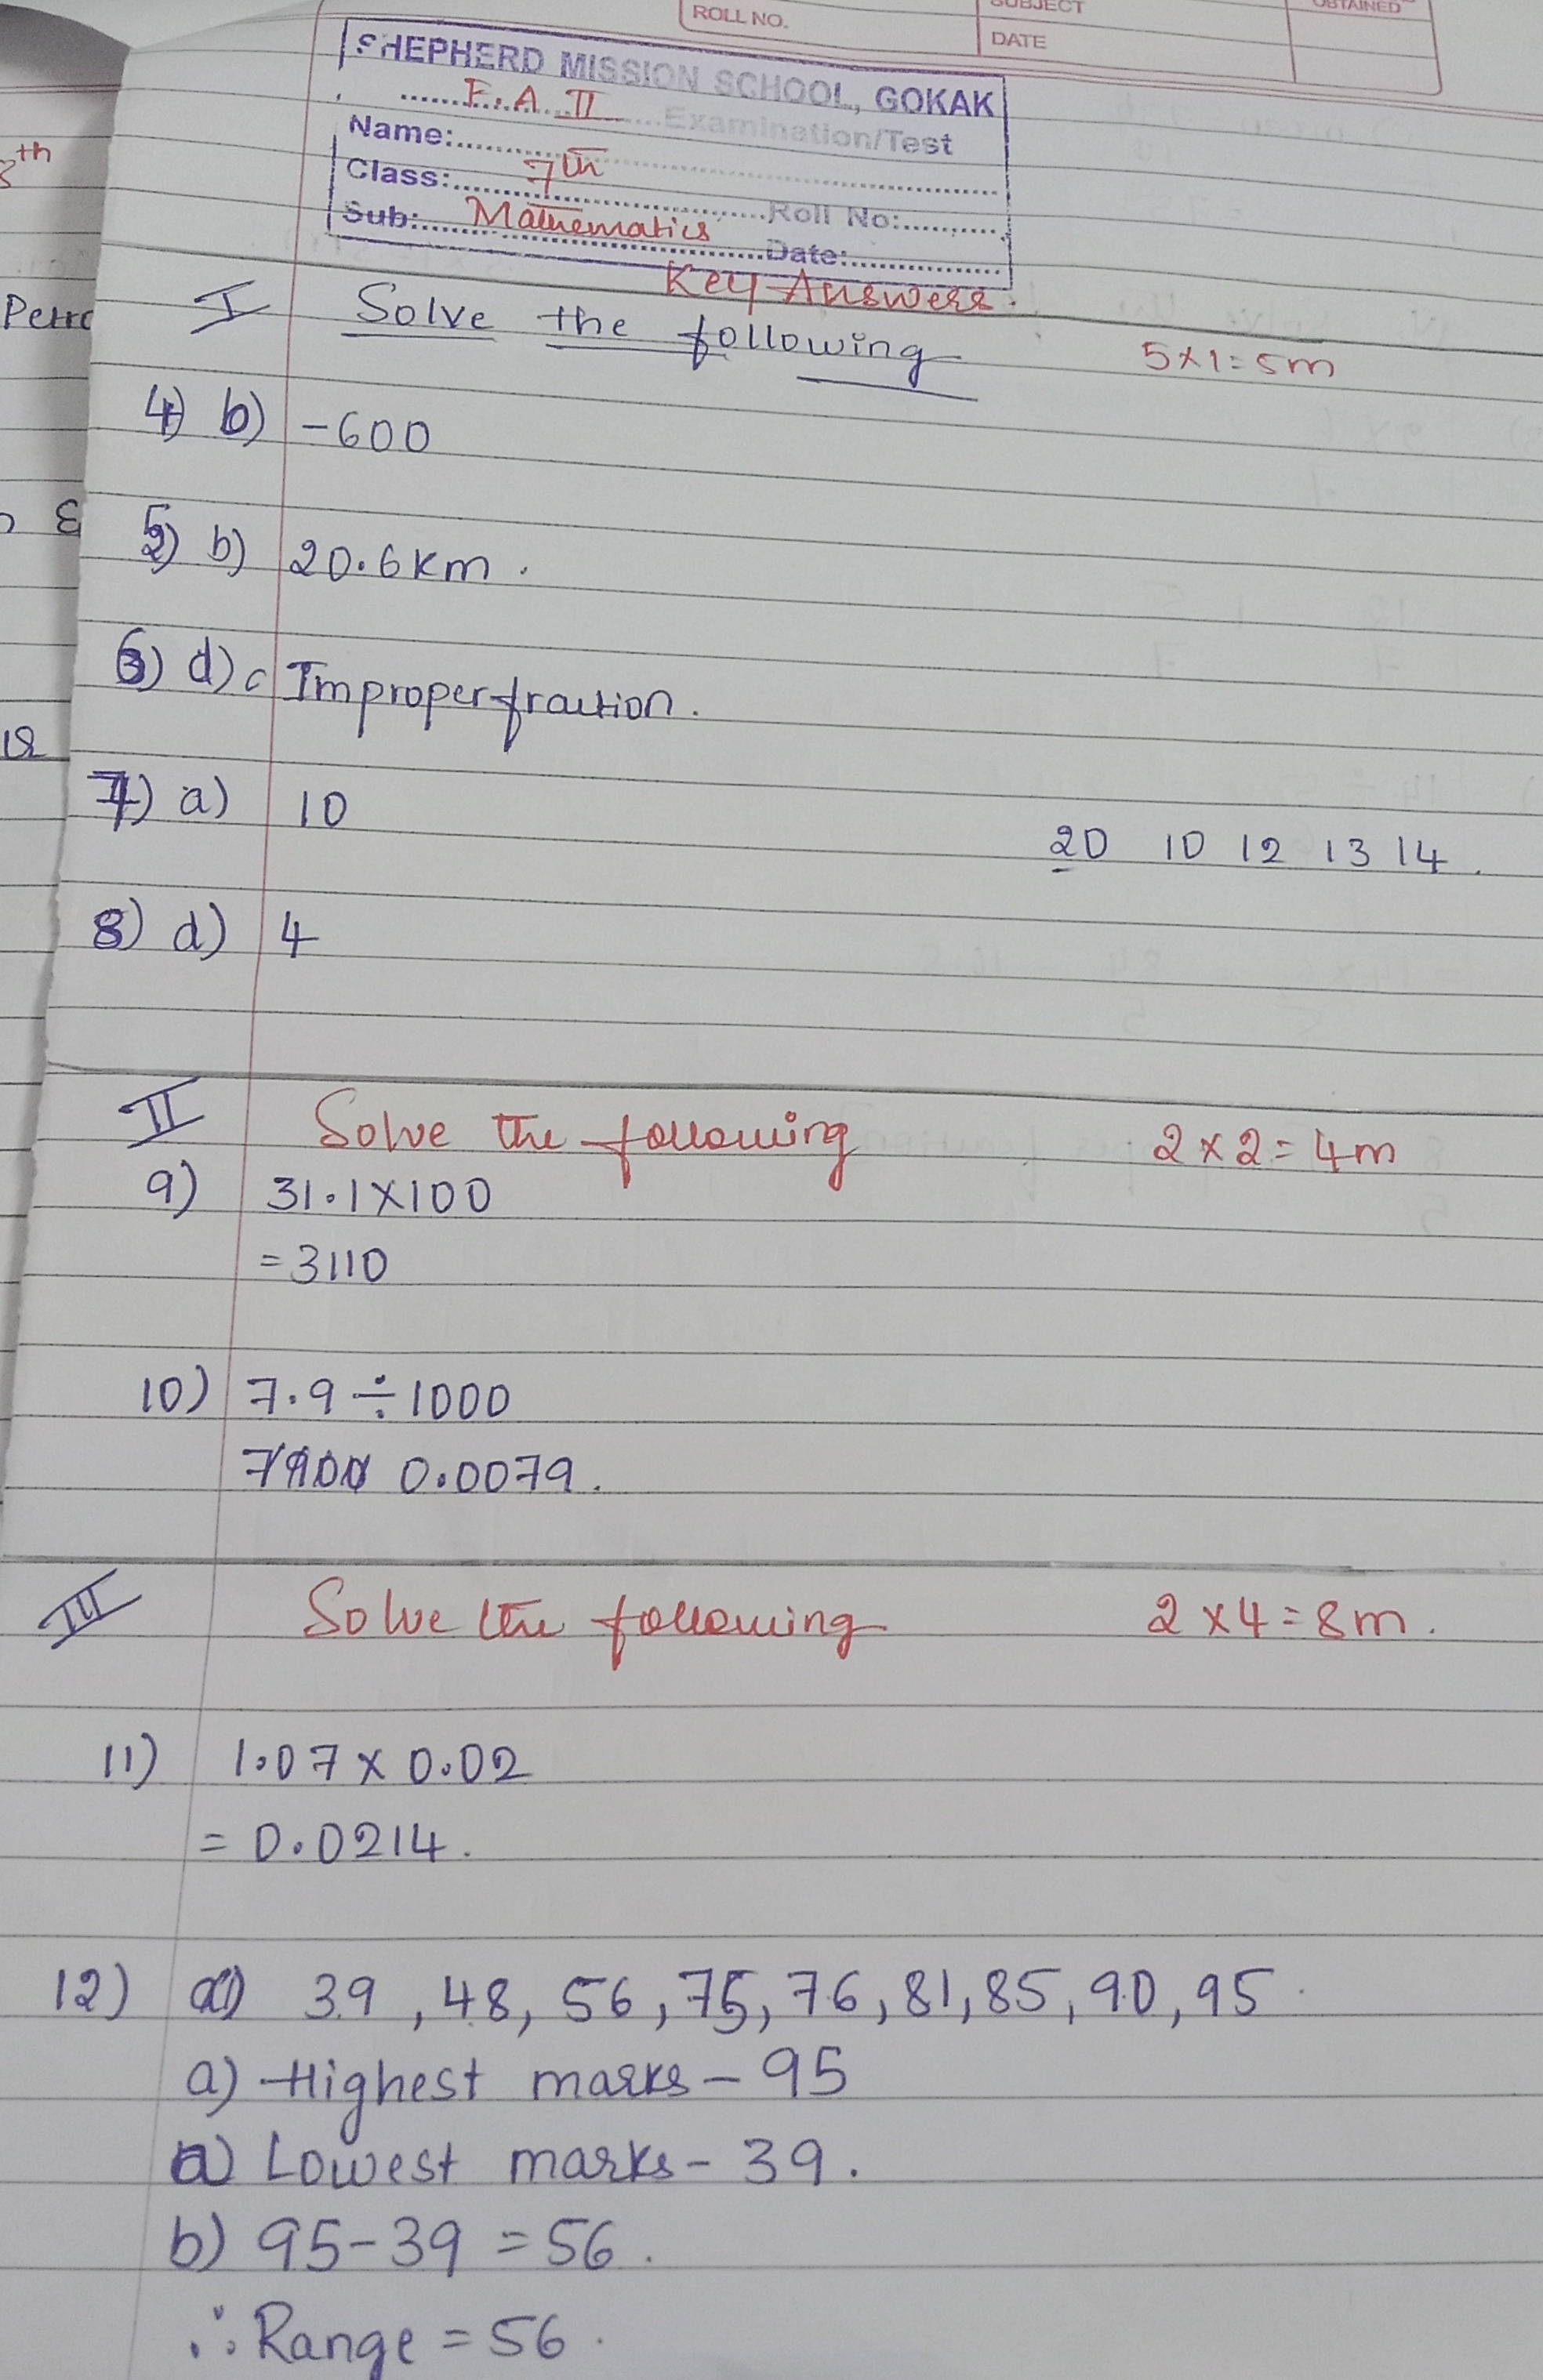 ROLL NO.
SUBJECT
OBTAINED
DATE
SHEPHERD MISSION SCHOOL, GOKAK
F.A II Examination/Test
Name:
Class: 7th
Roll No:
Sub: Mathematics
Date:
Key Answers.
I Solve the following 5×1=5m
4) b) -600
5) b) 20.6km.
6) d) c Improper fraction.
7) a) 10
20 10 12 13 14.
8) d) 4
II Solve the following 2×2=4m
9) 31.1×100
=3110
10) 7.9÷1000
7900 0.0079.
III Solve the following 2×4=8m.
11) 1.07×0.02
= 0.0214.
12) a) 39, 48, 56, 75, 76, 81, 85, 90, 95.
a) Highest marks - 95
a) Lowest marks - 39.
b) 95-39=56.
∴ Range = 56.
th
Petro